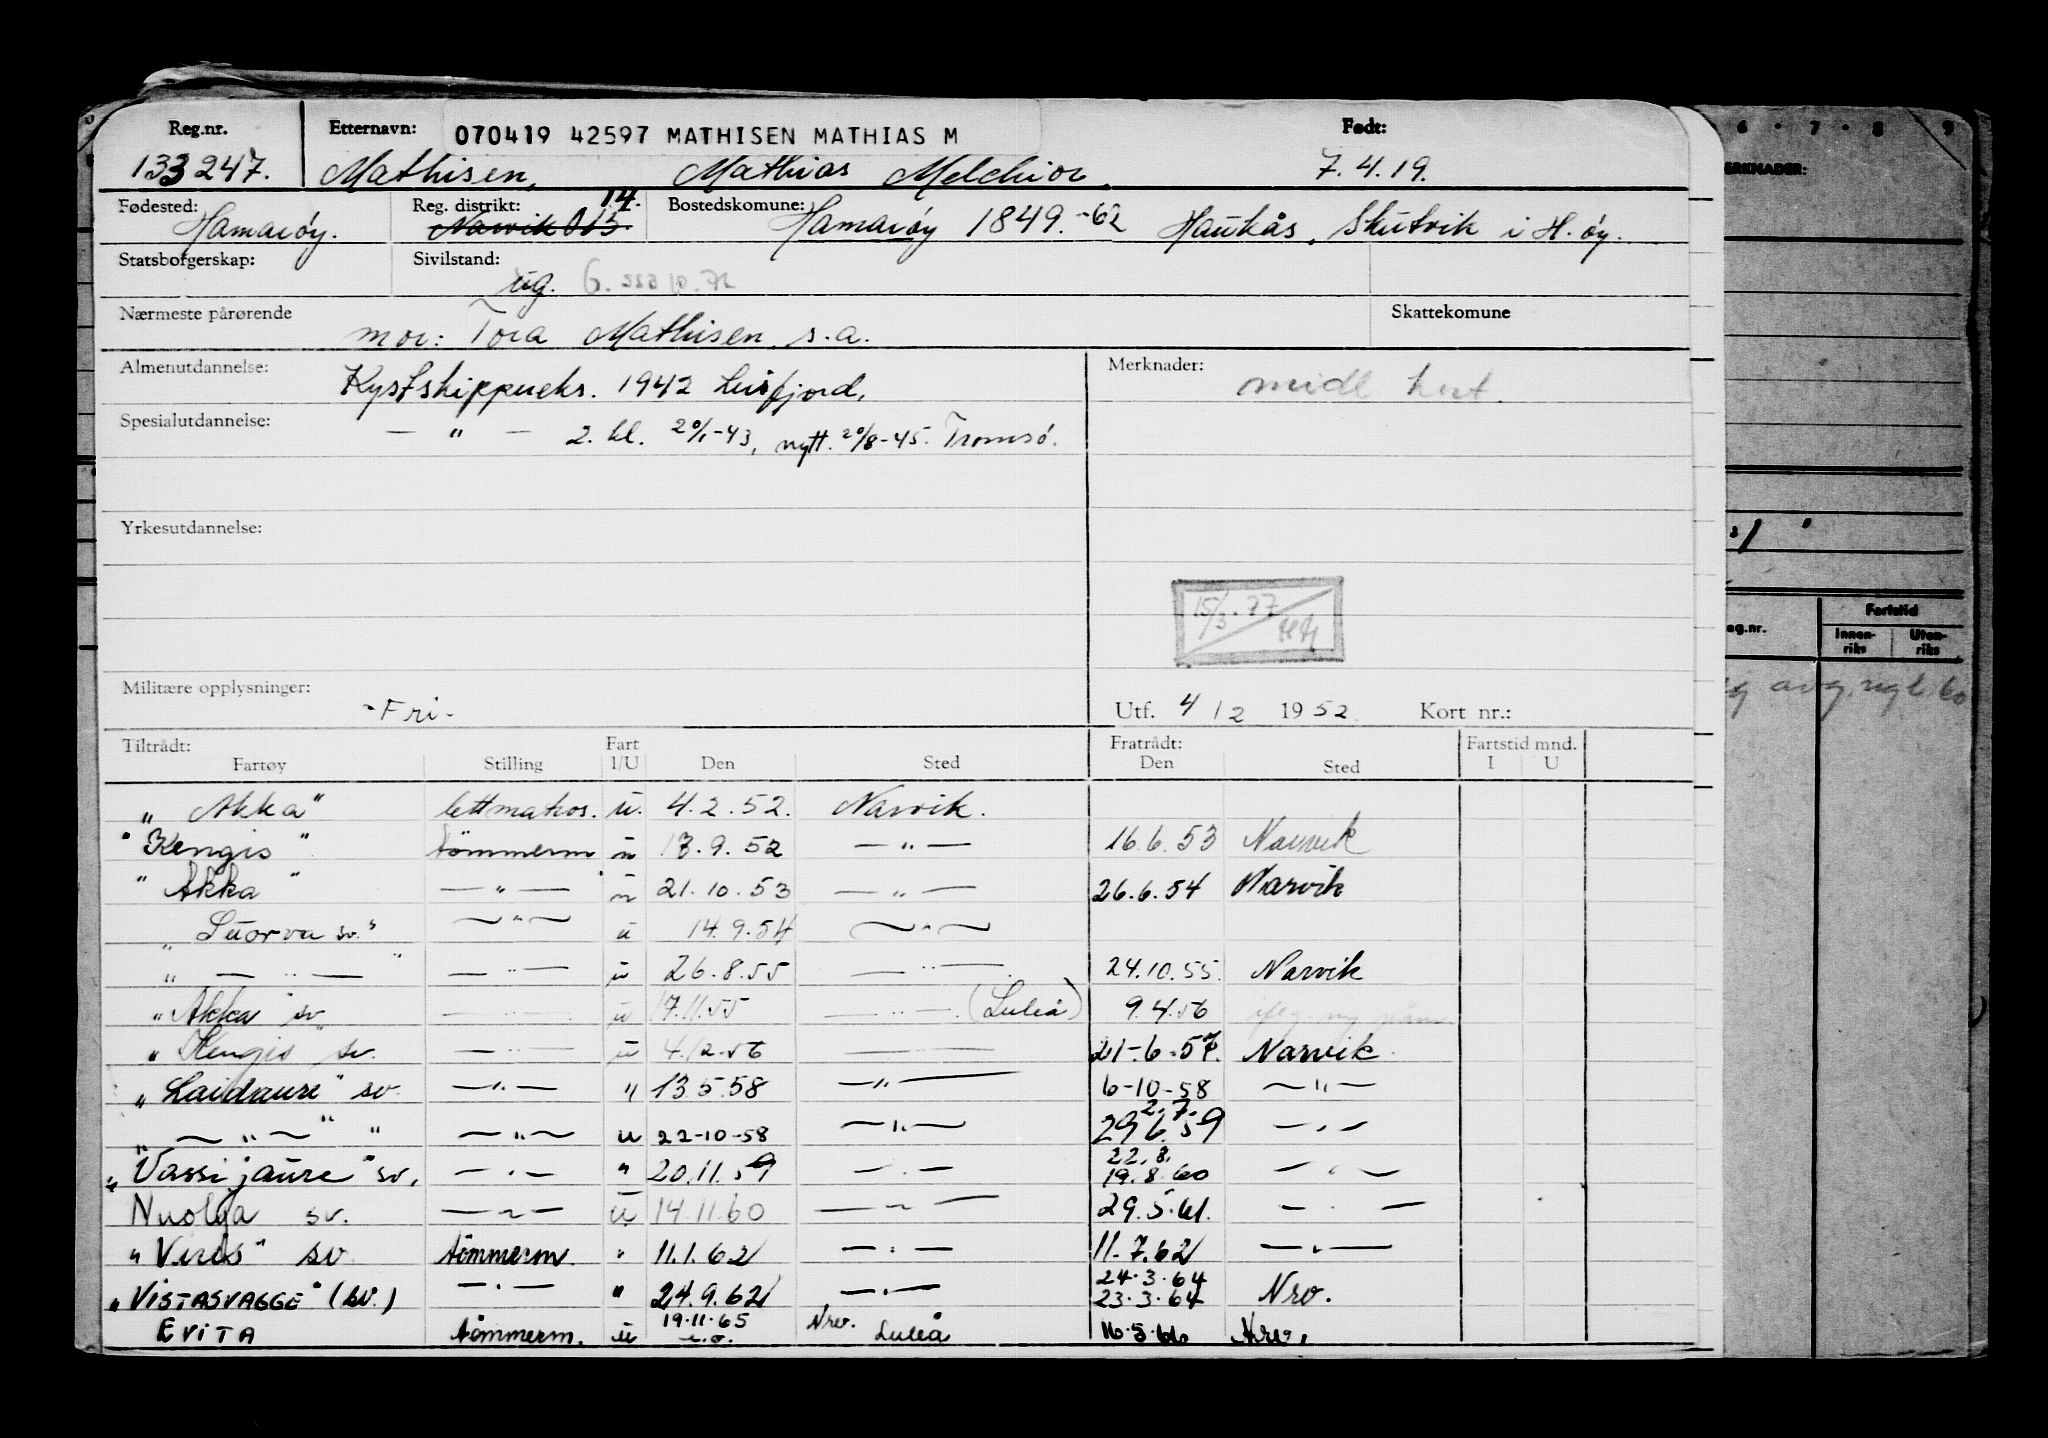 Reg.nr. Etternavn: 070419 42597 MATHISEN MATHIAS M Født:
133247. Mathisen, Mathias Melchior. 7.4.19.
Fødested: Reg. distrikt: 14. Bostedskomune:
Hamarøy. Narvik 015. Hamarøy 1849.-62 Haukås, Skutvik i H.øy.
Statsborgerskap: Sivilstand:
ug. G.
Nærmeste pårørende Skattekomune
mor: Tora Mathisen s.a.
Almenutdannelse: Merknader:
Kystskippereks. 1942 midl kort.
Spesialutdannelse:
— " — 2. kl. 20/1-43, nytt. 20/8-45. Tromsø.
Yrkesutdannelse:
15/3.77
Militære opplysninger:
-Fri- Utf. 4/2 1952 Kort nr.:
Tiltrådt: Fart Fratrådt: Fartstid mnd.
Fartøy Stilling I/U Den Sted Den Sted I U
"Akka" lettmatros. u. 4.2.52. Narvik.
"Kengis" tömmerm u 13.9.52 — " — 16.6.53 Narvik
"Akka" — " — u 21.10.53 — " — 26.6.54 Narvik
"Suorva sv." — " — u 14.9.54 — " —
" — " — " — " — u 26.8.55 — " — 24.10.55. Narvik
"Akka" sv — " — u 17.11.55 — " — (Luleå) 9.4.56
"Kengis" sv. — " — u 4.12.56 — " — 21-6-57. Narvik.
"Laidaure" sv. — " — " 13.5.58 — " — 6-10-58 — " —
2.7.
" — " — " " — " — u 22-10-58 — " — 29.6.59 — " —
22.8.
"Vassijaure" sv. — " — " 20.11.59 — " — 19.8.60 — " —
Nuolja sv. — " — u 14.11.60 — " — 29.5.61. — " —
"Vires" sv tömmerm. " 11.1.62 — " — 11.7.62 — " —
24.3.64
"VISTASVAGGE" (sv.) — " — " 24.9.62 — " — 23.3.64 Nrv.
19.11.65 Nrv.
EVITA tömmerm. u Luleå 16.5.66 Nrv.
6 . 7 . 8 9
ERKNADER:
Fartstid
eg.nr. Innen-riks Uten-riks